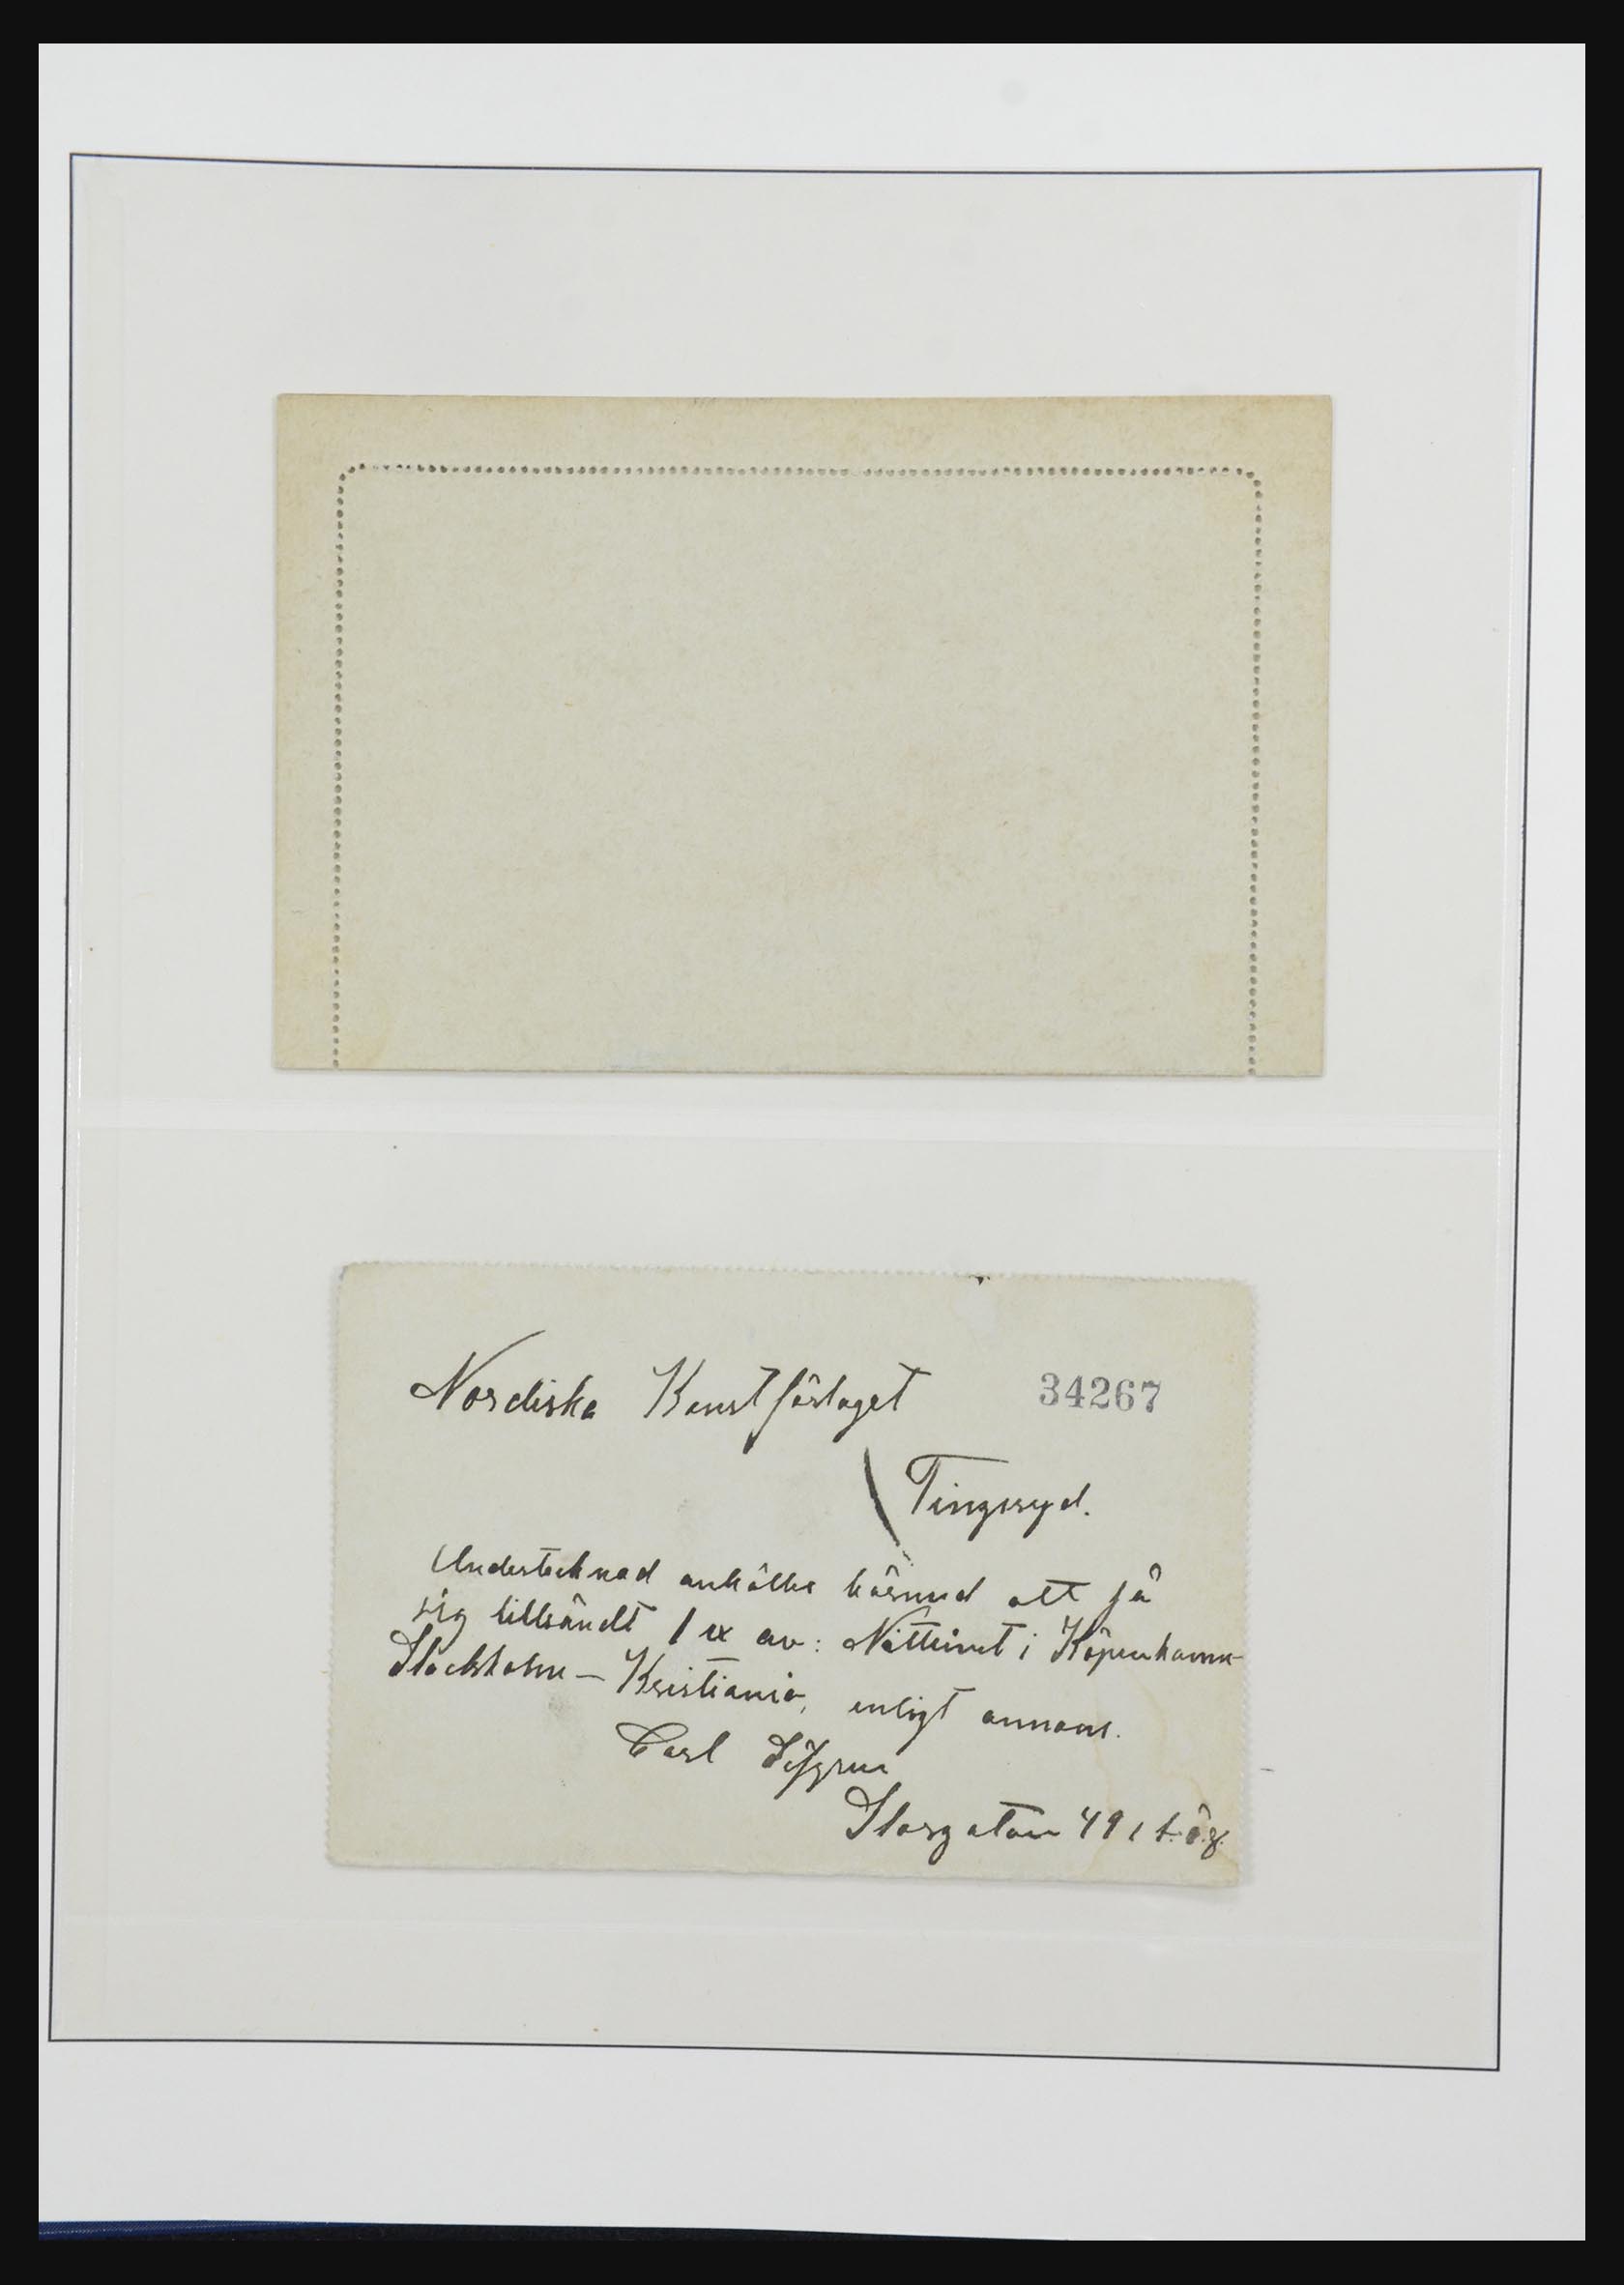 Nordiska Konstförlaget
34267
Tingsryd.
Undertecknad anhåller härmed att få
sig tillsändt 1 ex av: Nattlivet i Köpenhamn
Stockholm – Kristiania, enligt annons.
Carl
Storgatan 49 1 tr.